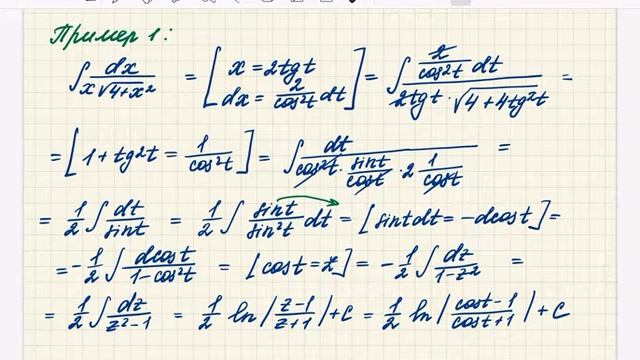 Пример 1:
∫ dx / (x√(4+x²)) = [ x = 2tgt, dx = 2/cos²t dt ] = ∫ (2/cos²t dt) / (2tgt · √(4+4tg²t)) =
= [ 1+tg²t = 1/cos²t ] = ∫ dt / (cos²t · sint/cost · 2 1/cost) =
= 1/2 ∫ dt/sint = 1/2 ∫ sint/sin²t dt = [sint dt = -dcost] =
= -1/2 ∫ dcost/(1-cos²t) = [cost = z] = -1/2 ∫ dz/(1-z²) =
= 1/2 ∫ dz/(z²-1) = 1/2 ln|(z-1)/(z+1)| + C = 1/2 ln|(cost-1)/(cost+1)| + C